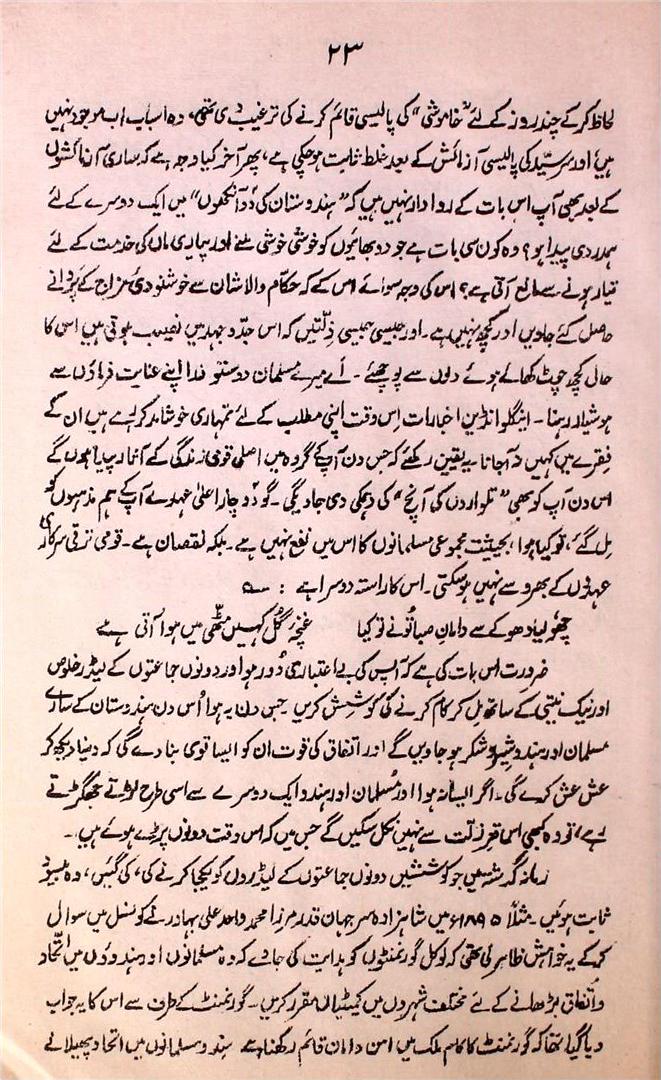 ۲۳
لحاظ کر کے چند روز کے لئے "خاموشی" کی پالیسی قائم کرنے کی ترغیب دی تھی، وہ اسباب اب موجود نہیں
ہیں اور سرسیّد کی پالیسی آزمائش کے بعد غلط ثابت ہو چکی ہے، پھر آخر کیا وجہ ہے کہ ساری آزمائشوں
کے بعد بھی آپ اس بات کے روادار نہیں ہیں کہ "ہندوستان کی دو آنکھوں" میں ایک دوسرے کے لئے
ہمدردی پیدا ہو؟ وہ کون سی بات ہے جو دو بھائیوں کو خوشی خوشی ملنے اور پیاری ماں کی خدمت کے لئے
تیار ہونے سے مانع آتی ہے؟ اس کی وجہ سوائے اس کے کہ حکّام والا شان سے خوشنودئ مزاج کے پروانے
حاصل کئے جاویں اور کچھ نہیں ہے۔ اور جیسی جیسی ذلّتیں کہ اس جدّوجہد میں نصیب ہوتی ہیں اس کا
حال کچھ چوٹ کھائے ہوئے دلوں سے پوچھئے۔ اے میرے مسلمان دوستو خدا اپنے عنایت فرماؤں سے
ہوشیار رہنا۔ اینگلو انڈین اخبارات اِس وقت اپنی مطلب کے لئے تمہاری خوشامد کر رہے ہیں ان کے
فقرے میں کہیں نہ آ جانا۔ یہ یقین رکھئے کہ جس دن آپ کے گروہ میں اصلی قومی زندگی کے آثار پیدا ہوں گے
اس دن آپ کو بھی "تلواروں کی آنچ" کی دھمکی دی جاویگی۔ گو دو چار اعلیٰ عہدے آپ کے ہم مذہبوں کو
مِل گئے، تو کیا ہوا، بحیثیت مجموعی مسلمانوں کا اس میں نفع نہیں ہے۔ بلکہ نقصان ہے۔ قومی ترقی سرکاری
عہدوں کے بھروسے نہیں ہو سکتی۔ اس کا راستہ دوسرا ہے :
چھو لیا دھوکے سے دامانِ صبا تو نے تو کیا غنچۂ گُل کہیں مٹھّی میں ہوا آتی ہے
ضرورت اس بات کی ہے کہ آپس کی بے اعتباری دُور ہو اور دونوں جماعتوں کے لیڈر خلوص
اور نیک نیتی کے ساتھ مِل کر کام کرنے کی کوشش کریں۔ جس دن یہ ہوا اُس دن ہندوستان کے سارے
مسلمان اور ہندو شیر و شکر ہو جاویں گے اور اتفاق کی قوت ان کو ایسا قوی بنا دے گی کہ دنیا دیکھ کر
عش عش کرے گی۔ اگر ایسا نہ ہوا اور مُسلمان اور ہندو ایک دوسرے سے اسی طرح لڑتے جھگڑتے
رہے، تو وہ کبھی اس قعرِ ذلت سے نہیں نکل سکیں گے جس میں کہ اس وقت دونوں پڑے ہوئے ہیں۔
زمانہ گذشتہ میں جو کوششیں دونوں جماعتوں کے لیڈروں کو یکجا کرنے کی، کی گئیں، وہ بے سود
ثابت ہوئیں۔ مثلاً ۱۸۹۵ء میں شاہزادہ سر جہان قدر مرزا محمد واحد علی بہادر نے کونسل میں سوال
کر کے یہ خواہش ظاہر کی تھی کہ لوکل گورنمنٹوں کو ہدایت کی جاوے کہ وہ مسلمانوں اور ہندوؤں میں اتّحاد
و اتّفاق بڑھانے کے لئے مختلف شہروں میں کمیٹیاں مقرر کریں۔ گورنمنٹ کے طرف سے اس کا یہ جواب
دیا گیا تھا کہ گورنمنٹ کا کام ملک میں امن و امان قائم رکھنا ہے ہندو مسلمانوں میں اتحاد پھیلانے